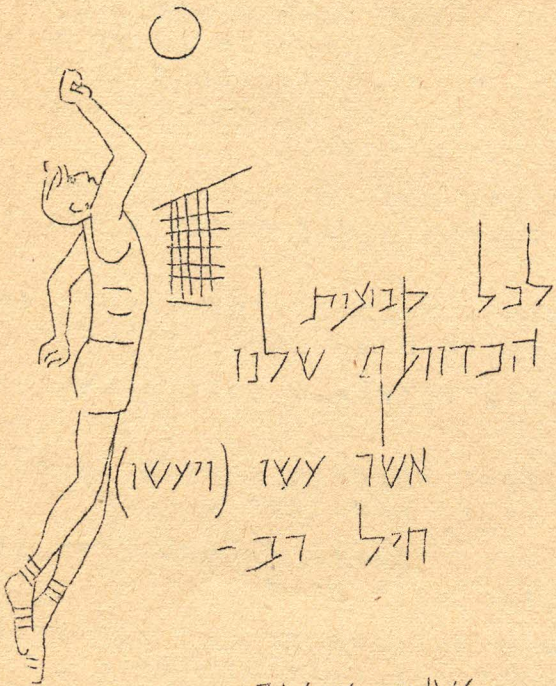 לכל קבוצות
הכדורת שלנו
אשר עשו (ויעשו)
חיל רב -